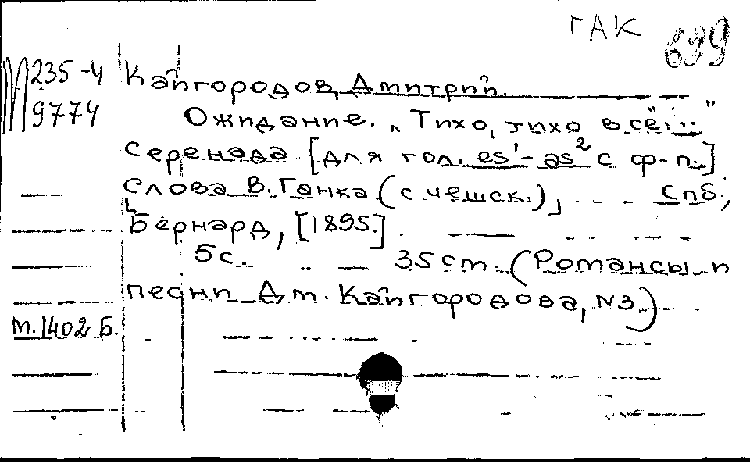 ГАК 699
М 235-4
9774
Кайгородов, Дмитрий.
Ожидание. „Тихо, тихо всё..."
Серенада [для гол. es'-as² с ф-п.]
Слова В. Ганка (с чешск.), Спб,
Бернард, [1895.]
5 с. 35 cm. (Романсы и
песни Дм. Кайгородова, N3.)
М.1402 Б.